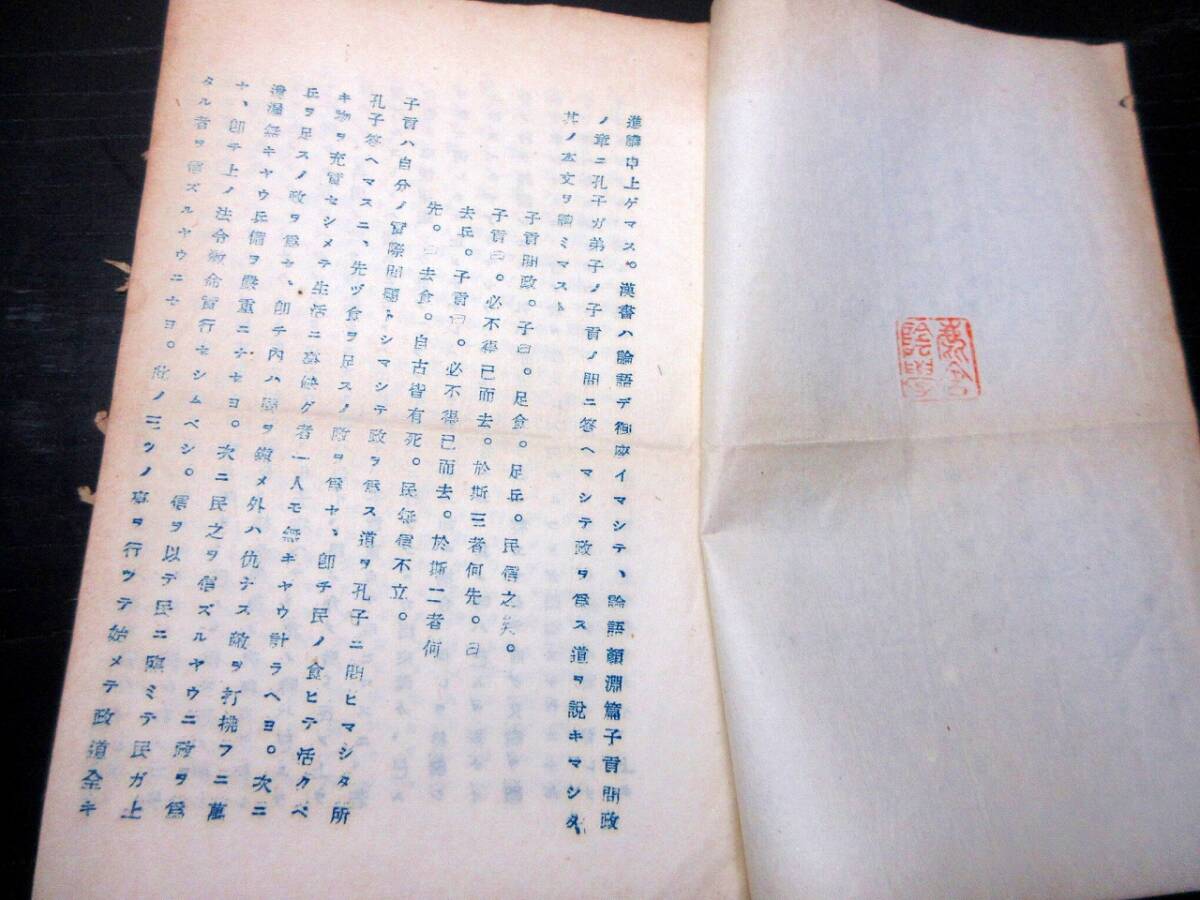 進講申上ゲマスル漢書ハ論語デ御座イマシテ、論語顔淵篇子貢問政
ノ章ニ孔子ガ弟子ノ子貢ノ問ニ答ヘマシテ政ヲ為ス道ヲ説キマシタ
其ノ本文ヲ讀ミマスト
子貢問政。子曰。足食。足兵。民信之矣。
子貢曰。必不得已而去。於斯三者何先。曰
去兵。子貢曰。必不得已而去。於斯二者何
先。曰去食。自古皆有死。民無信不立。
子貢ハ自分ノ實際問題トシマシテ政ヲ為ス道ヲ孔子ニ問ヒマシタ所
孔子答ヘマスニ、先ヅ食ヲ足スノ政ヲ為セ、卽チ民ノ食ヒテ活クベ
キ物ヲ充實セシメテ生活ニ事缺グ者一人モ無キヤウ計ラヘヨ。次ニ
兵ヲ足スノ政ヲ為セ、卽チ內ハ亂ヲ鎭メ外ハ仇ナス敵ヲ打攘フニ萬
遺漏無キヤウ兵備ヲ嚴重ニセヨ。次ニ民之ヲ信ズルヤウニ政ヲ為
セ、卽チ上ノ法令命實行セシムベシ。信ヲ以テ民ニ臨ミテ民ガ上
タル者ヲ信ズルヤウニセヨ。此ノ三ツノ事ヲ行ツテ始メテ政道全キ